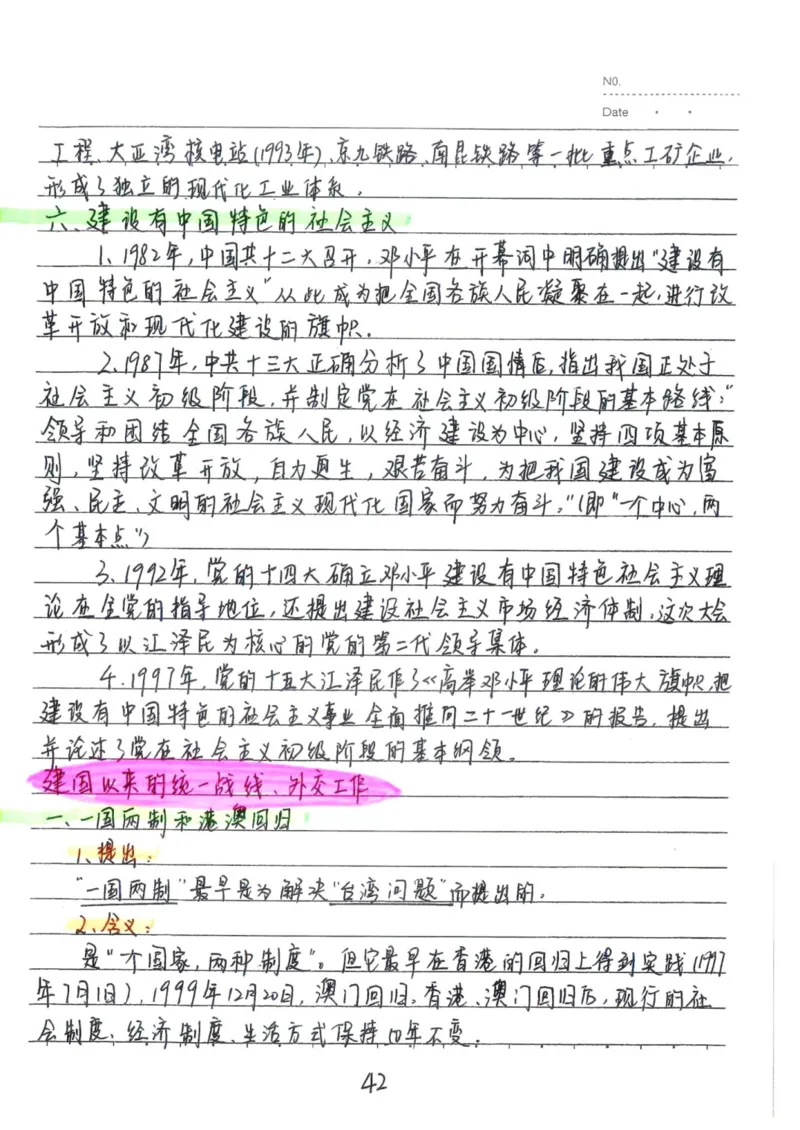 NO.
Date
工程、大亚湾核电站(1993年)、京九铁路、南昆铁路等一批重点工矿企业,
形成了独立的现代化工业体系。
六、建设有中国特色的社会主义
1、1982年,中国共十二大召开,邓小平在开幕词中明确提出“建设有
中国特色的社会主义”从此成为把全国各族人民凝聚在一起,进行改
革开放和现代化建设的旗帜.
2、1987年,中共十三大正确分析了中国国情后,指出我国正处于
社会主义初级阶段,并制定党在社会主义初级阶段的基本路线:“
领导和团结全国各族人民,以经济建设为中心,坚持四项基本原
则,坚持改革开放,自力更生,艰苦奋斗,为把我国建设成为富
强、民主、文明的社会主义现代化国家而努力奋斗。”(即“一个中心,两
个基本点”)
3、1992年,党的十四大确立邓小平建设有中国特色社会主义理
论在全党的指导地位,还提出建设社会主义市场经济体制,这次大会
形成了以江泽民为核心的党的第二代领导集体。
4.1997年,党的十五大江泽民作了《高举邓小平理论的伟大旗帜,把
建设有中国特色的社会主义事业全面推向二十一世纪》的报告,提出
并论述了党在社会主义初级阶段的基本纲领。
建国以来的统一战线、外交工作
一、一国两制和港澳回归
1、提出:
“一国两制”最早是为解决“台湾问题”而提出的.
2、含义:
是“个国家,两种制度”。但它最早在香港的回归上得到实践(1997
年7月1日),1999年12月20日,澳门回归。香港、澳门回归后,现行的社
会制度、经济制度、生活方式保持50年不变。
42